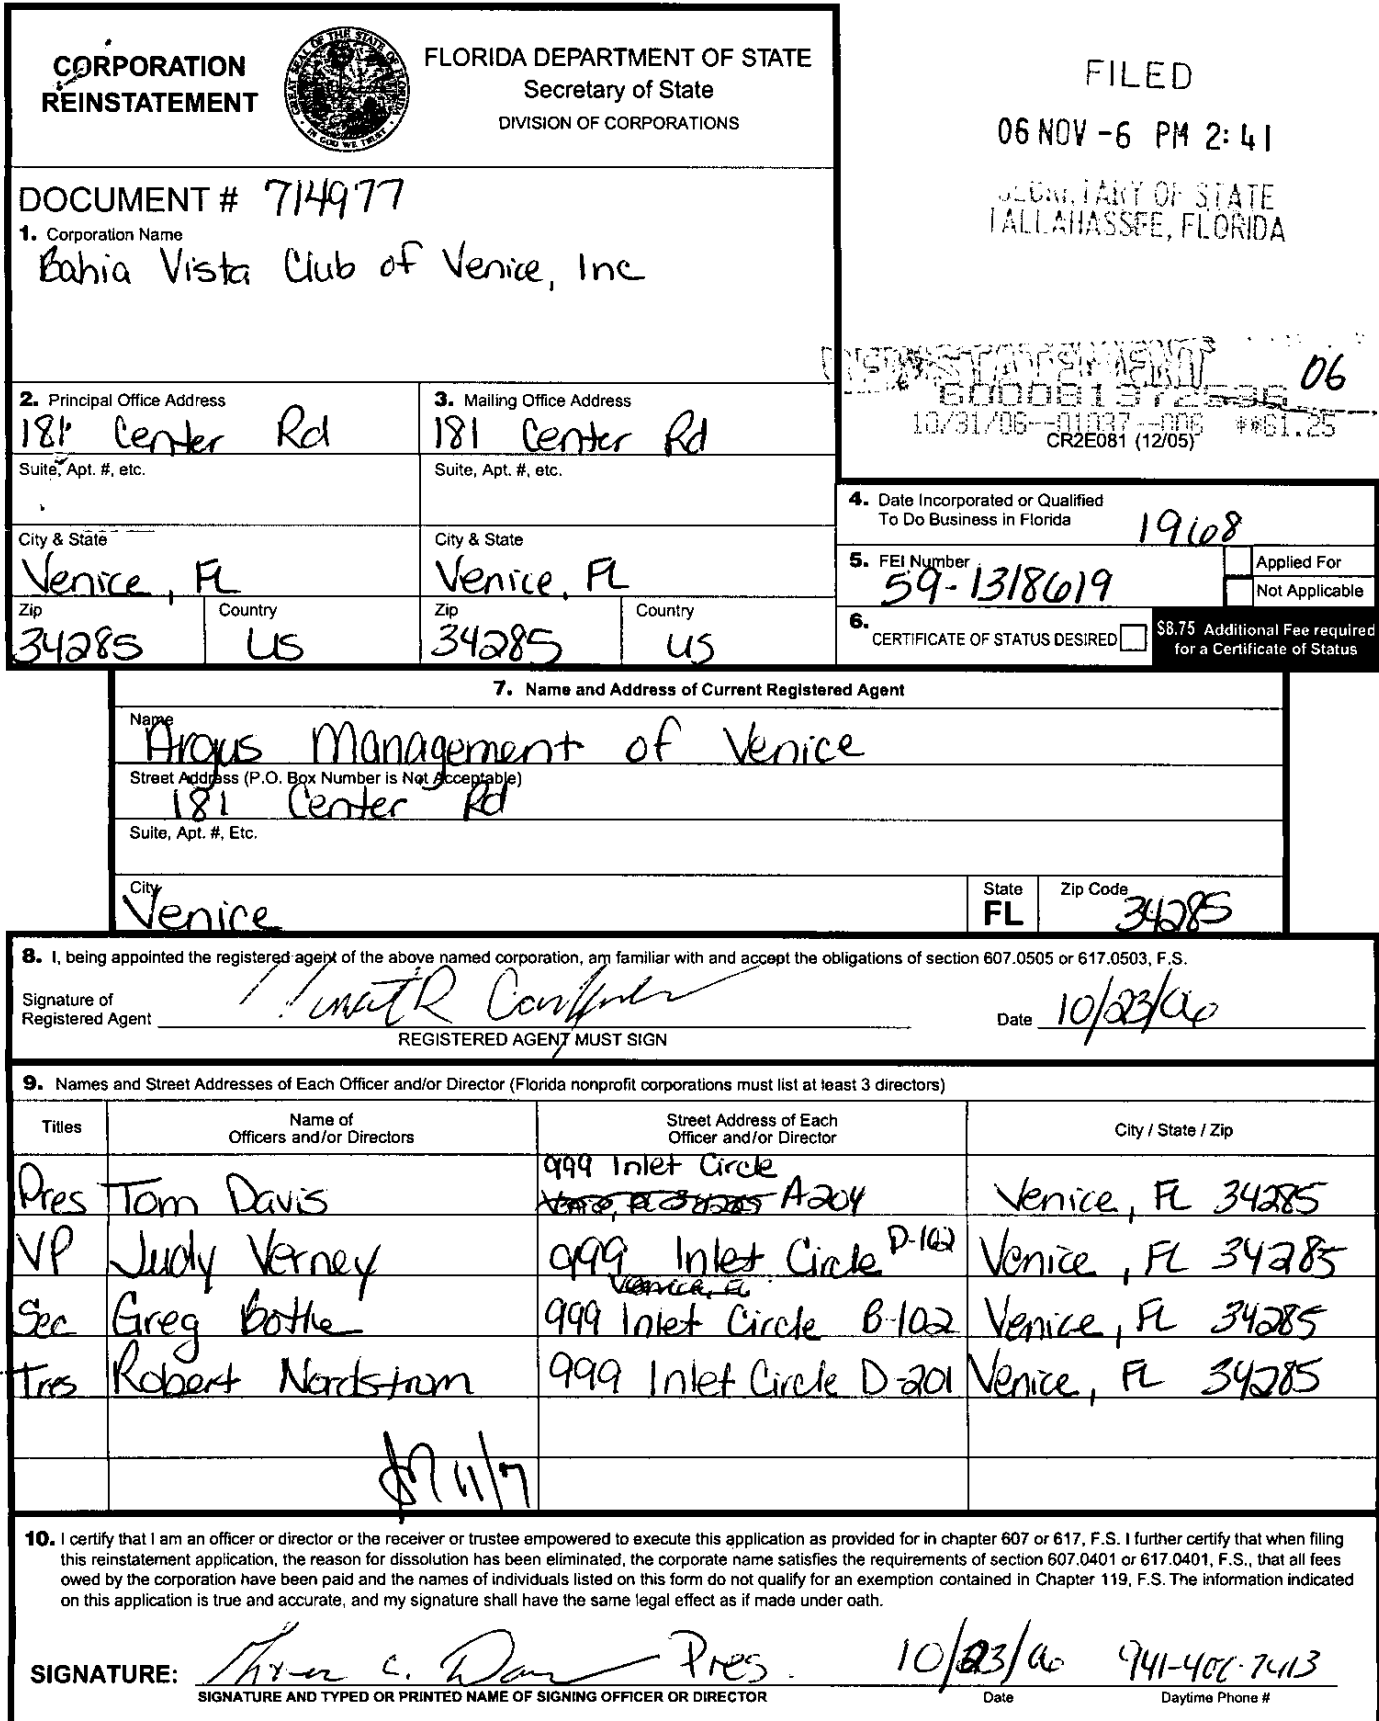 CORPORATION
REINSTATEMENT
GREAT SEAL OF THE STATE OF FLORIDA
IN GOD WE TRUST
FLORIDA DEPARTMENT OF STATE
Secretary of State
DIVISION OF CORPORATIONS
FILED
06 NOV -6 PM 2:41
SECRETARY OF STATE
TALLAHASSEE, FLORIDA
DOCUMENT # 714977
1. Corporation Name
Bahia Vista Club of Venice, Inc
REINSTATEMENT 06
10/31/06--01037--006 **61.25
CR2E081 (12/05)
2. Principal Office Address
181 Center Rd
Suite, Apt. #, etc.
City & State
Venice, FL
Zip
34285
Country
US
3. Mailing Office Address
181 Center Rd
Suite, Apt. #, etc.
City & State
Venice, FL
Zip
34285
Country
US
4. Date Incorporated or Qualified
To Do Business in Florida
1968
5. FEI Number
59-1318619
Applied For
Not Applicable
6.
CERTIFICATE OF STATUS DESIRED
$8.75 Additional Fee required
for a Certificate of Status
7. Name and Address of Current Registered Agent
Name
Argus Management of Venice
Street Address (P.O. Box Number is Not Acceptable)
181 Center Rd
Suite, Apt. #, Etc.
City
Venice
State
FL
Zip Code
34285
8. I, being appointed the registered agent of the above named corporation, am familiar with and accept the obligations of section 607.0505 or 617.0503, F.S.
Signature of
Registered Agent
REGISTERED AGENT MUST SIGN
Date 10/23/06
9. Names and Street Addresses of Each Officer and/or Director (Florida nonprofit corporations must list at least 3 directors)
Titles
Name of
Officers and/or Directors
Street Address of Each
Officer and/or Director
City / State / Zip
Pres Tom Davis 999 Inlet Circle A204 Venice, FL 34285
VP Judy Verney 999 Inlet Circle D-102 Venice, FL 34285
Sec Greg Bothe 999 Inlet Circle B-102 Venice, FL 34285
Tres Robert Nordstrom 999 Inlet Circle D-201 Venice, FL 34285
11/7
10. I certify that I am an officer or director or the receiver or trustee empowered to execute this application as provided for in chapter 607 or 617, F.S. I further certify that when filing
this reinstatement application, the reason for dissolution has been eliminated, the corporate name satisfies the requirements of section 607.0401 or 617.0401, F.S., that all fees
owed by the corporation have been paid and the names of individuals listed on this form do not qualify for an exemption contained in Chapter 119, F.S. The information indicated
on this application is true and accurate, and my signature shall have the same legal effect as if made under oath.
SIGNATURE: Pres. 10/23/06
SIGNATURE AND TYPED OR PRINTED NAME OF SIGNING OFFICER OR DIRECTOR
Date
Daytime Phone #